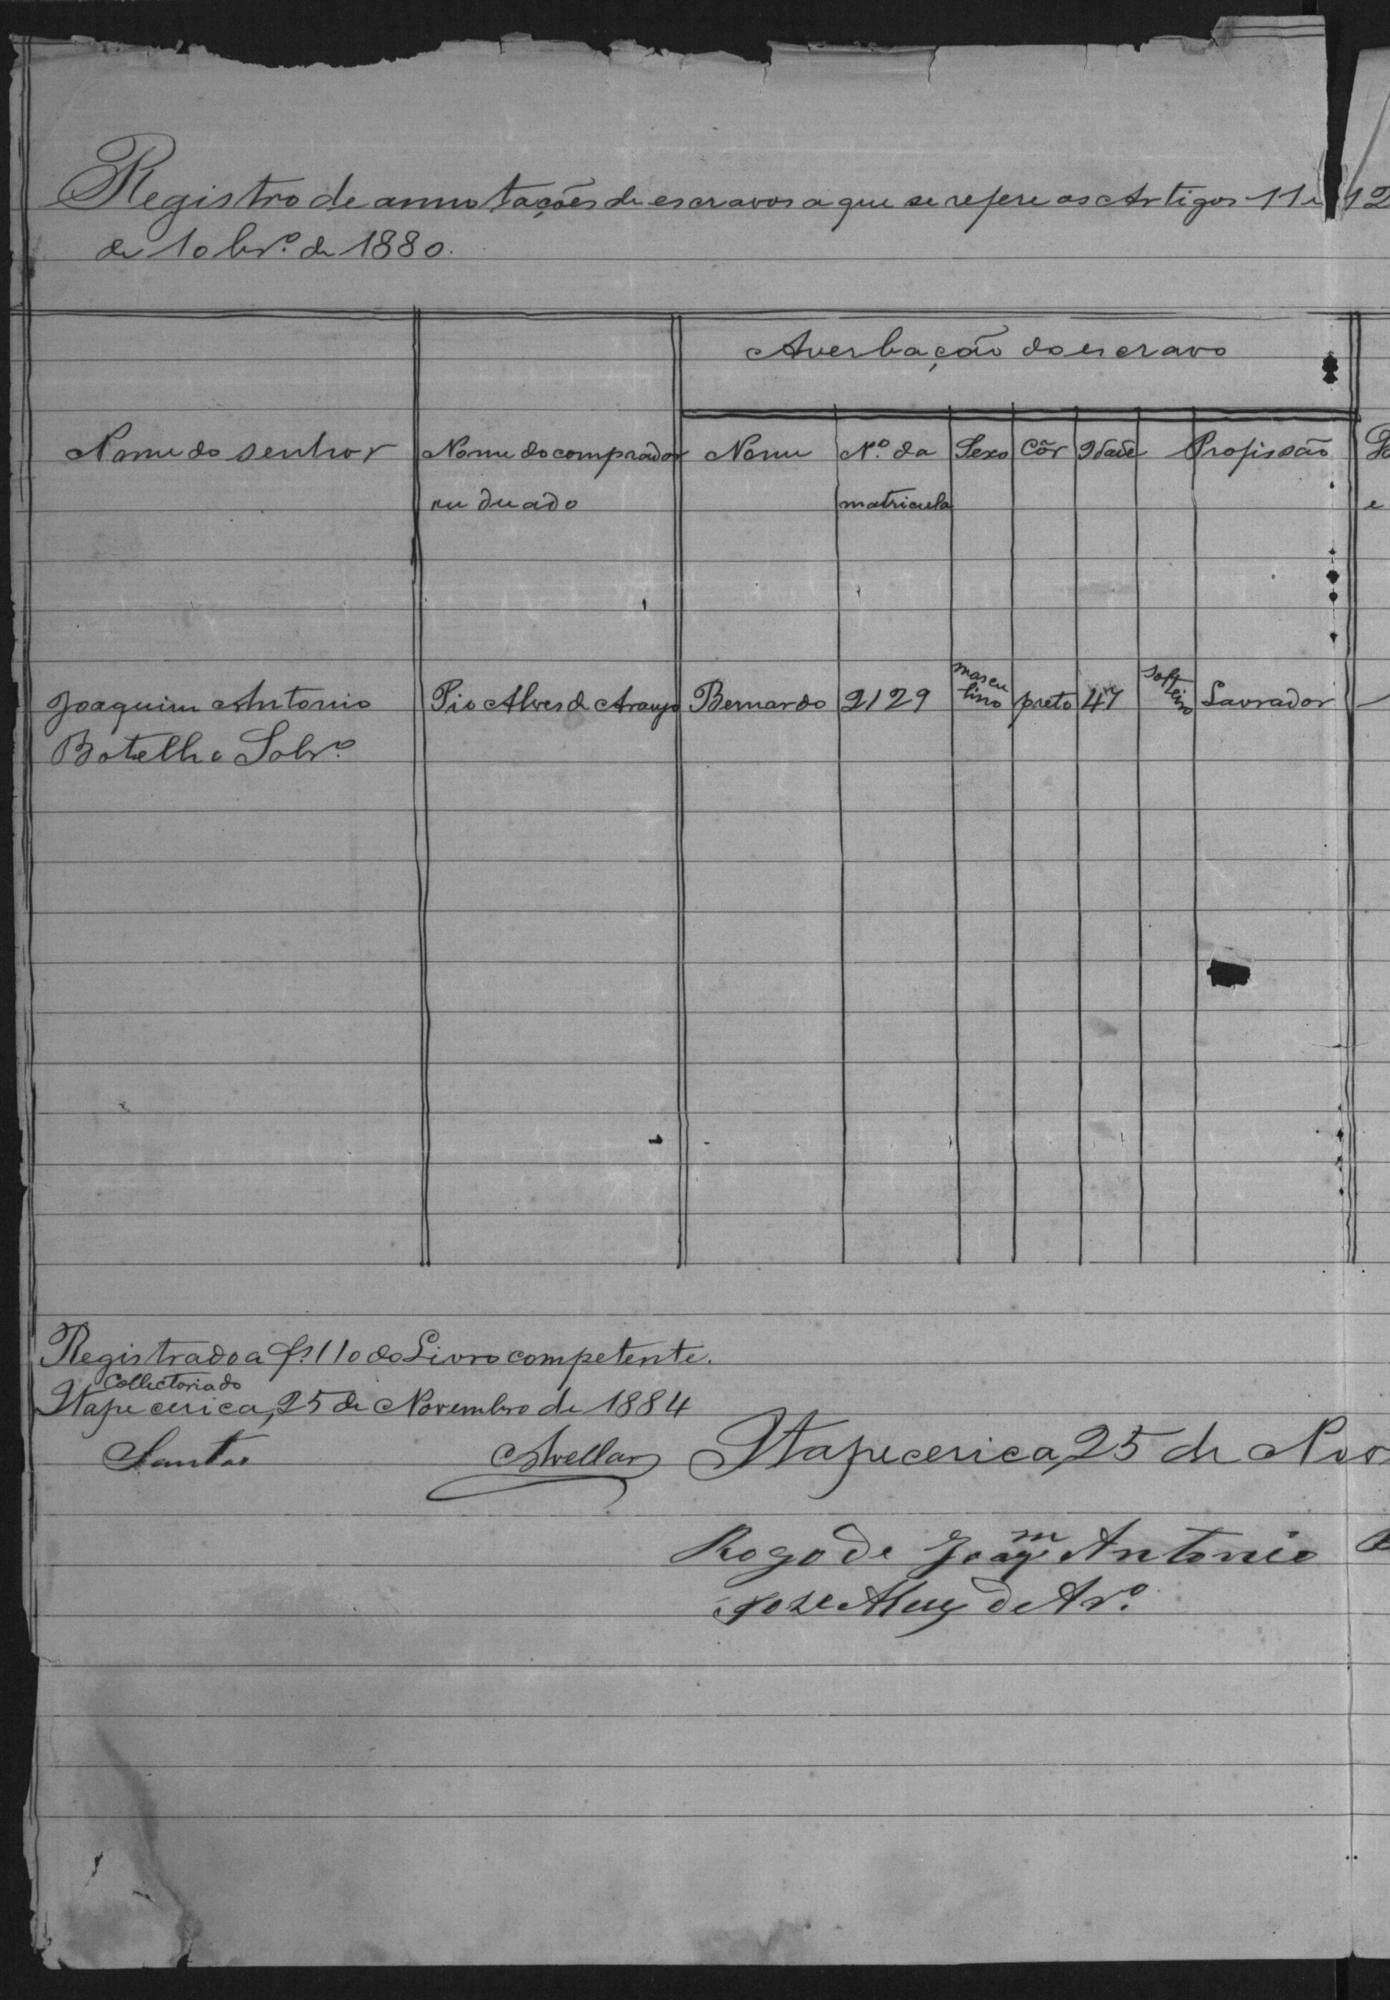 Registro de annotações de escravos a que se refere os Artigos 11 e 12
de 10 br.º de 1880.
Averbação do escravo
Nome do senhor
Nome do comprador
Nome
N.º da
Sexo
Côr
Idade
Profissão
matricula
e
Joaquim Antonio
Botelho Sobr.º
Pio Alves de Araujo
Bernardo
2129
mascu
lino
preto
47
solteiro
Lavrador
Registrado a fs. 110 do Livro competente.
Collectoria do
Itapecerica, 25 de Novembro de 1884
Santos
Avellar
Itapecerica, 25 de Nov
Rogo de Joaqm Antonio B
Jose de Ar.º